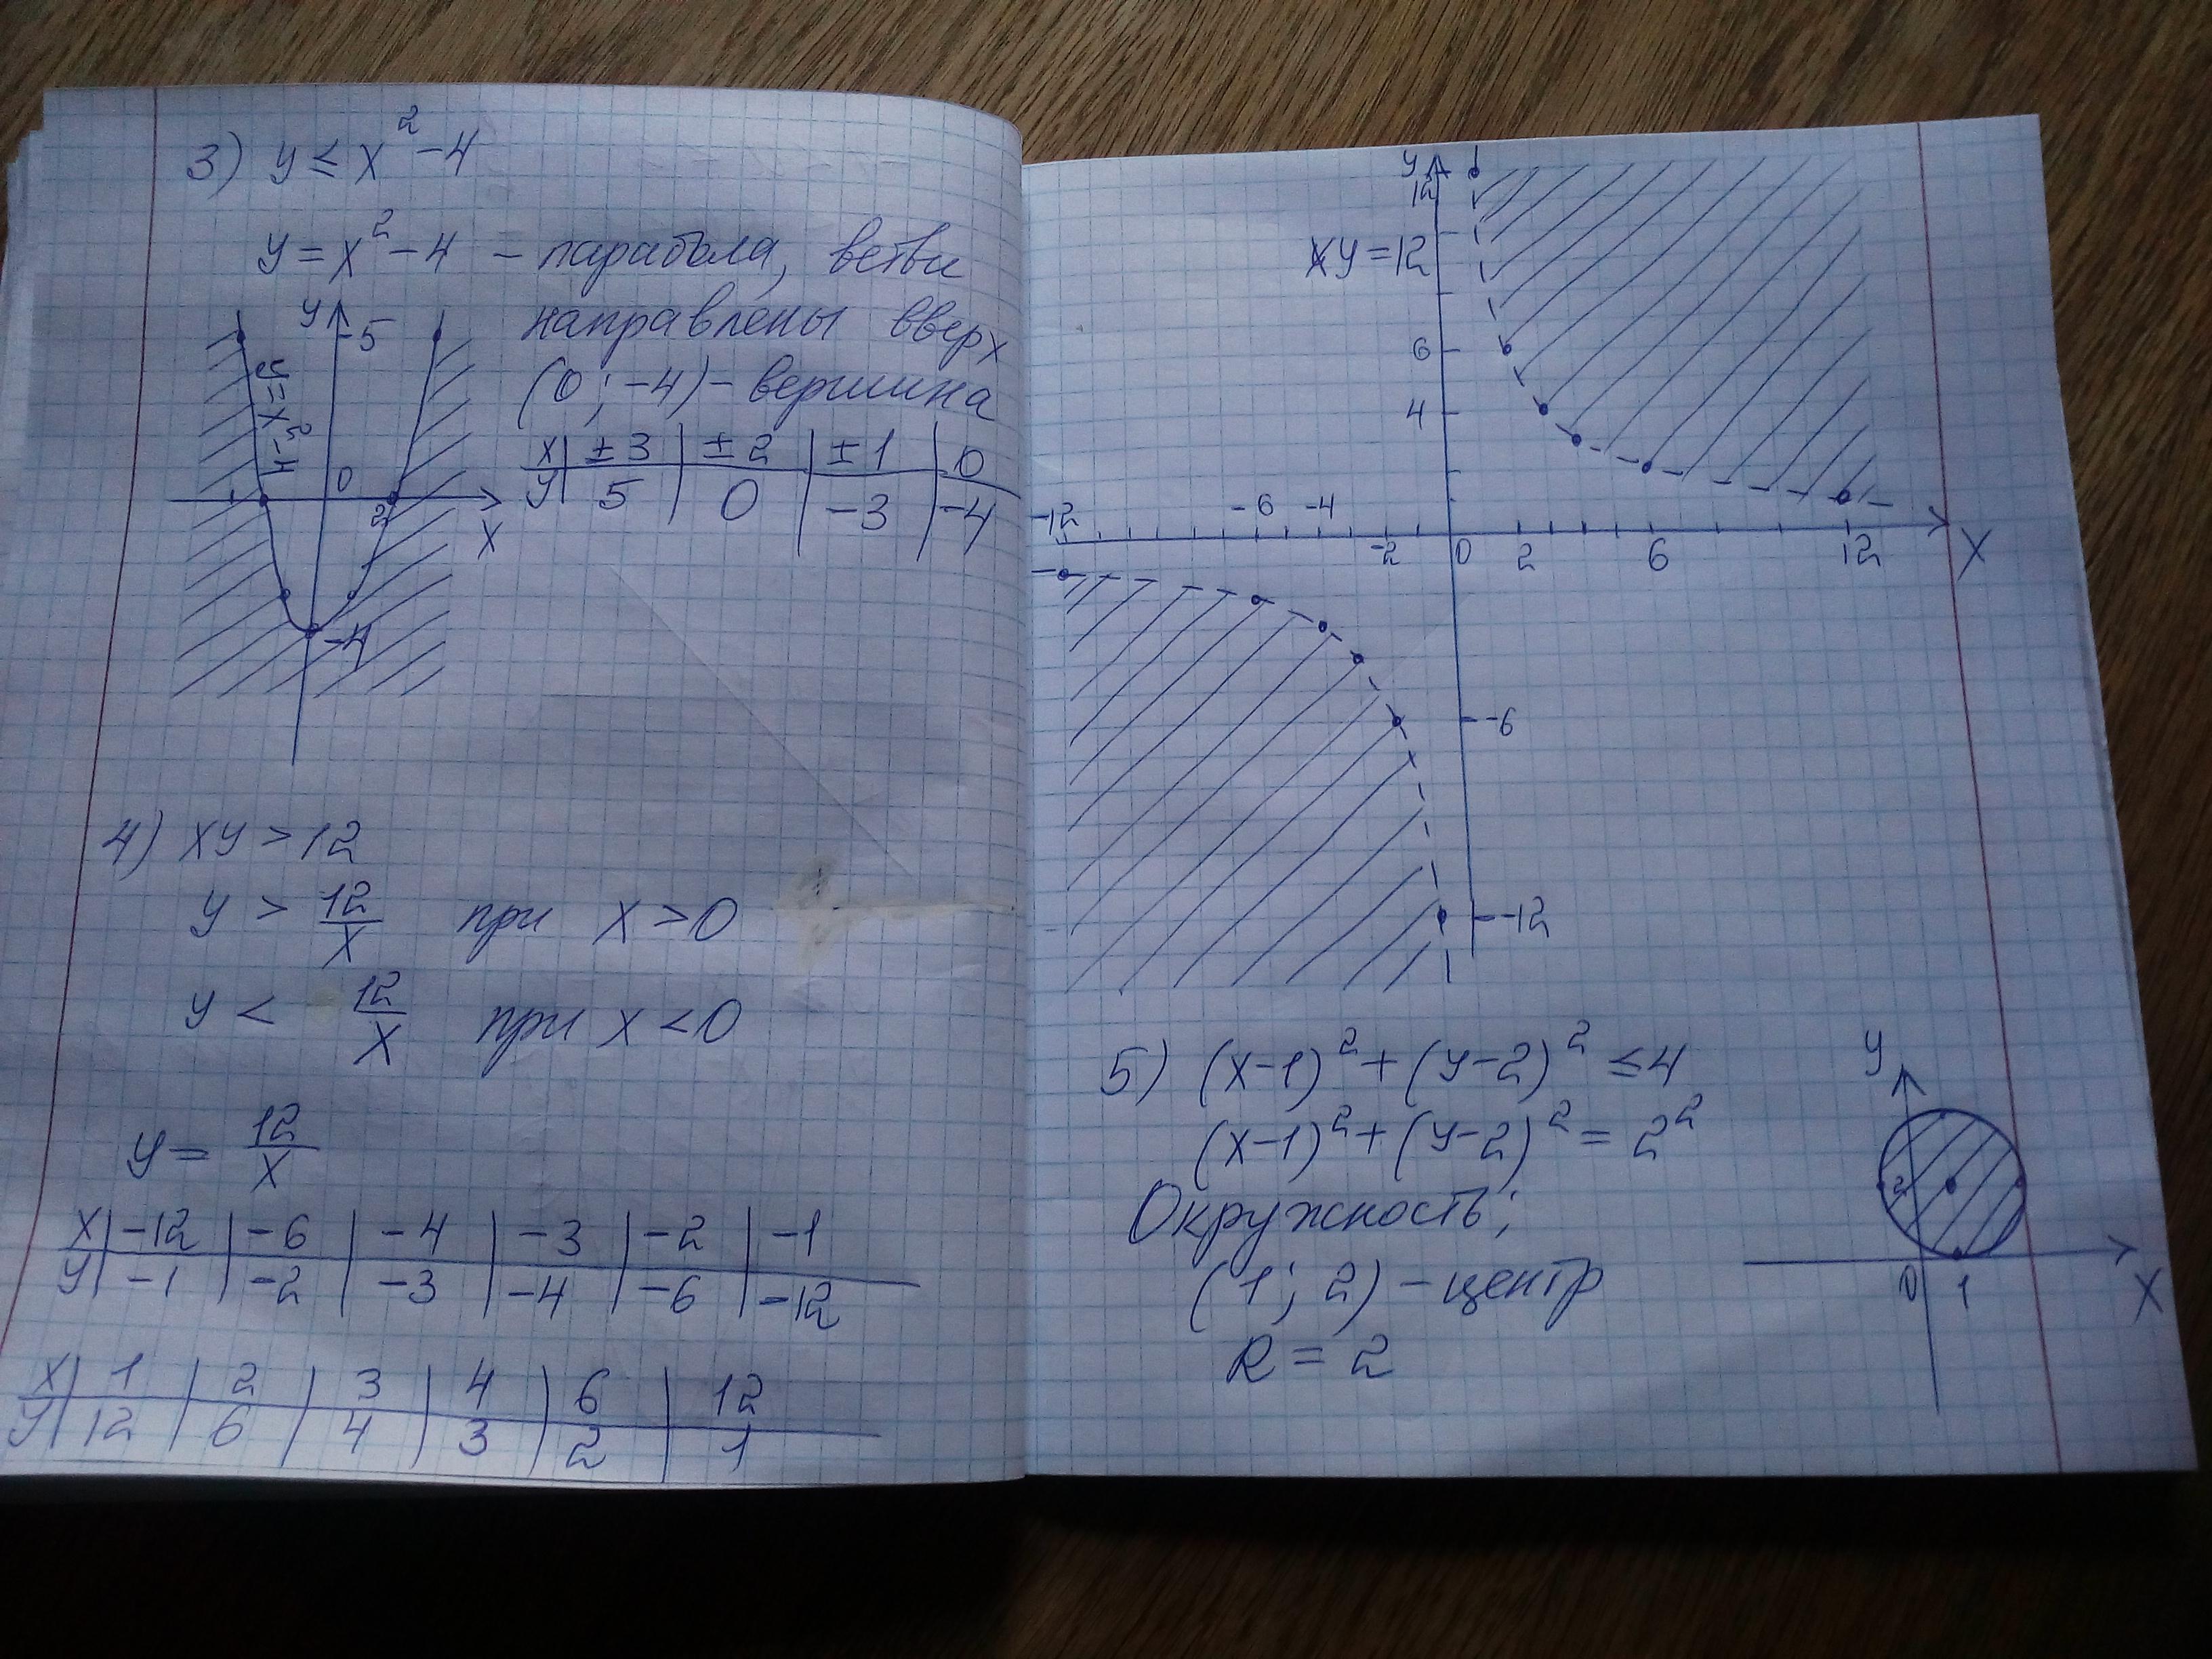 3) y ≤ x² - 4
y = x² - 4 - парабола, ветви
направлены вверх
(0; -4) - вершина
x | ±3 | ±2 | ±1 | 0
y | 5 | 0 | -3 | -4
y
5
y = x² - 4
0
2
x
-4
4) xy > 12
y > 12/x при x > 0
y < 12/x при x < 0
y = 12/x
x | -12 | -6 | -4 | -3 | -2 | -1
y | -1 | -2 | -3 | -4 | -6 | -12
x | 1 | 2 | 3 | 4 | 6 | 12
y | 12 | 6 | 4 | 3 | 2 | 1
y
12
xy = 12
6
4
-12 -6 -4
-2 0 2 6 12 x
-6
-12
5) (x-1)² + (y-2)² ≤ 4
(x-1)² + (y-2)² = 2²
Окружность;
(1; 2) - центр
R = 2
y
2
0 1 x